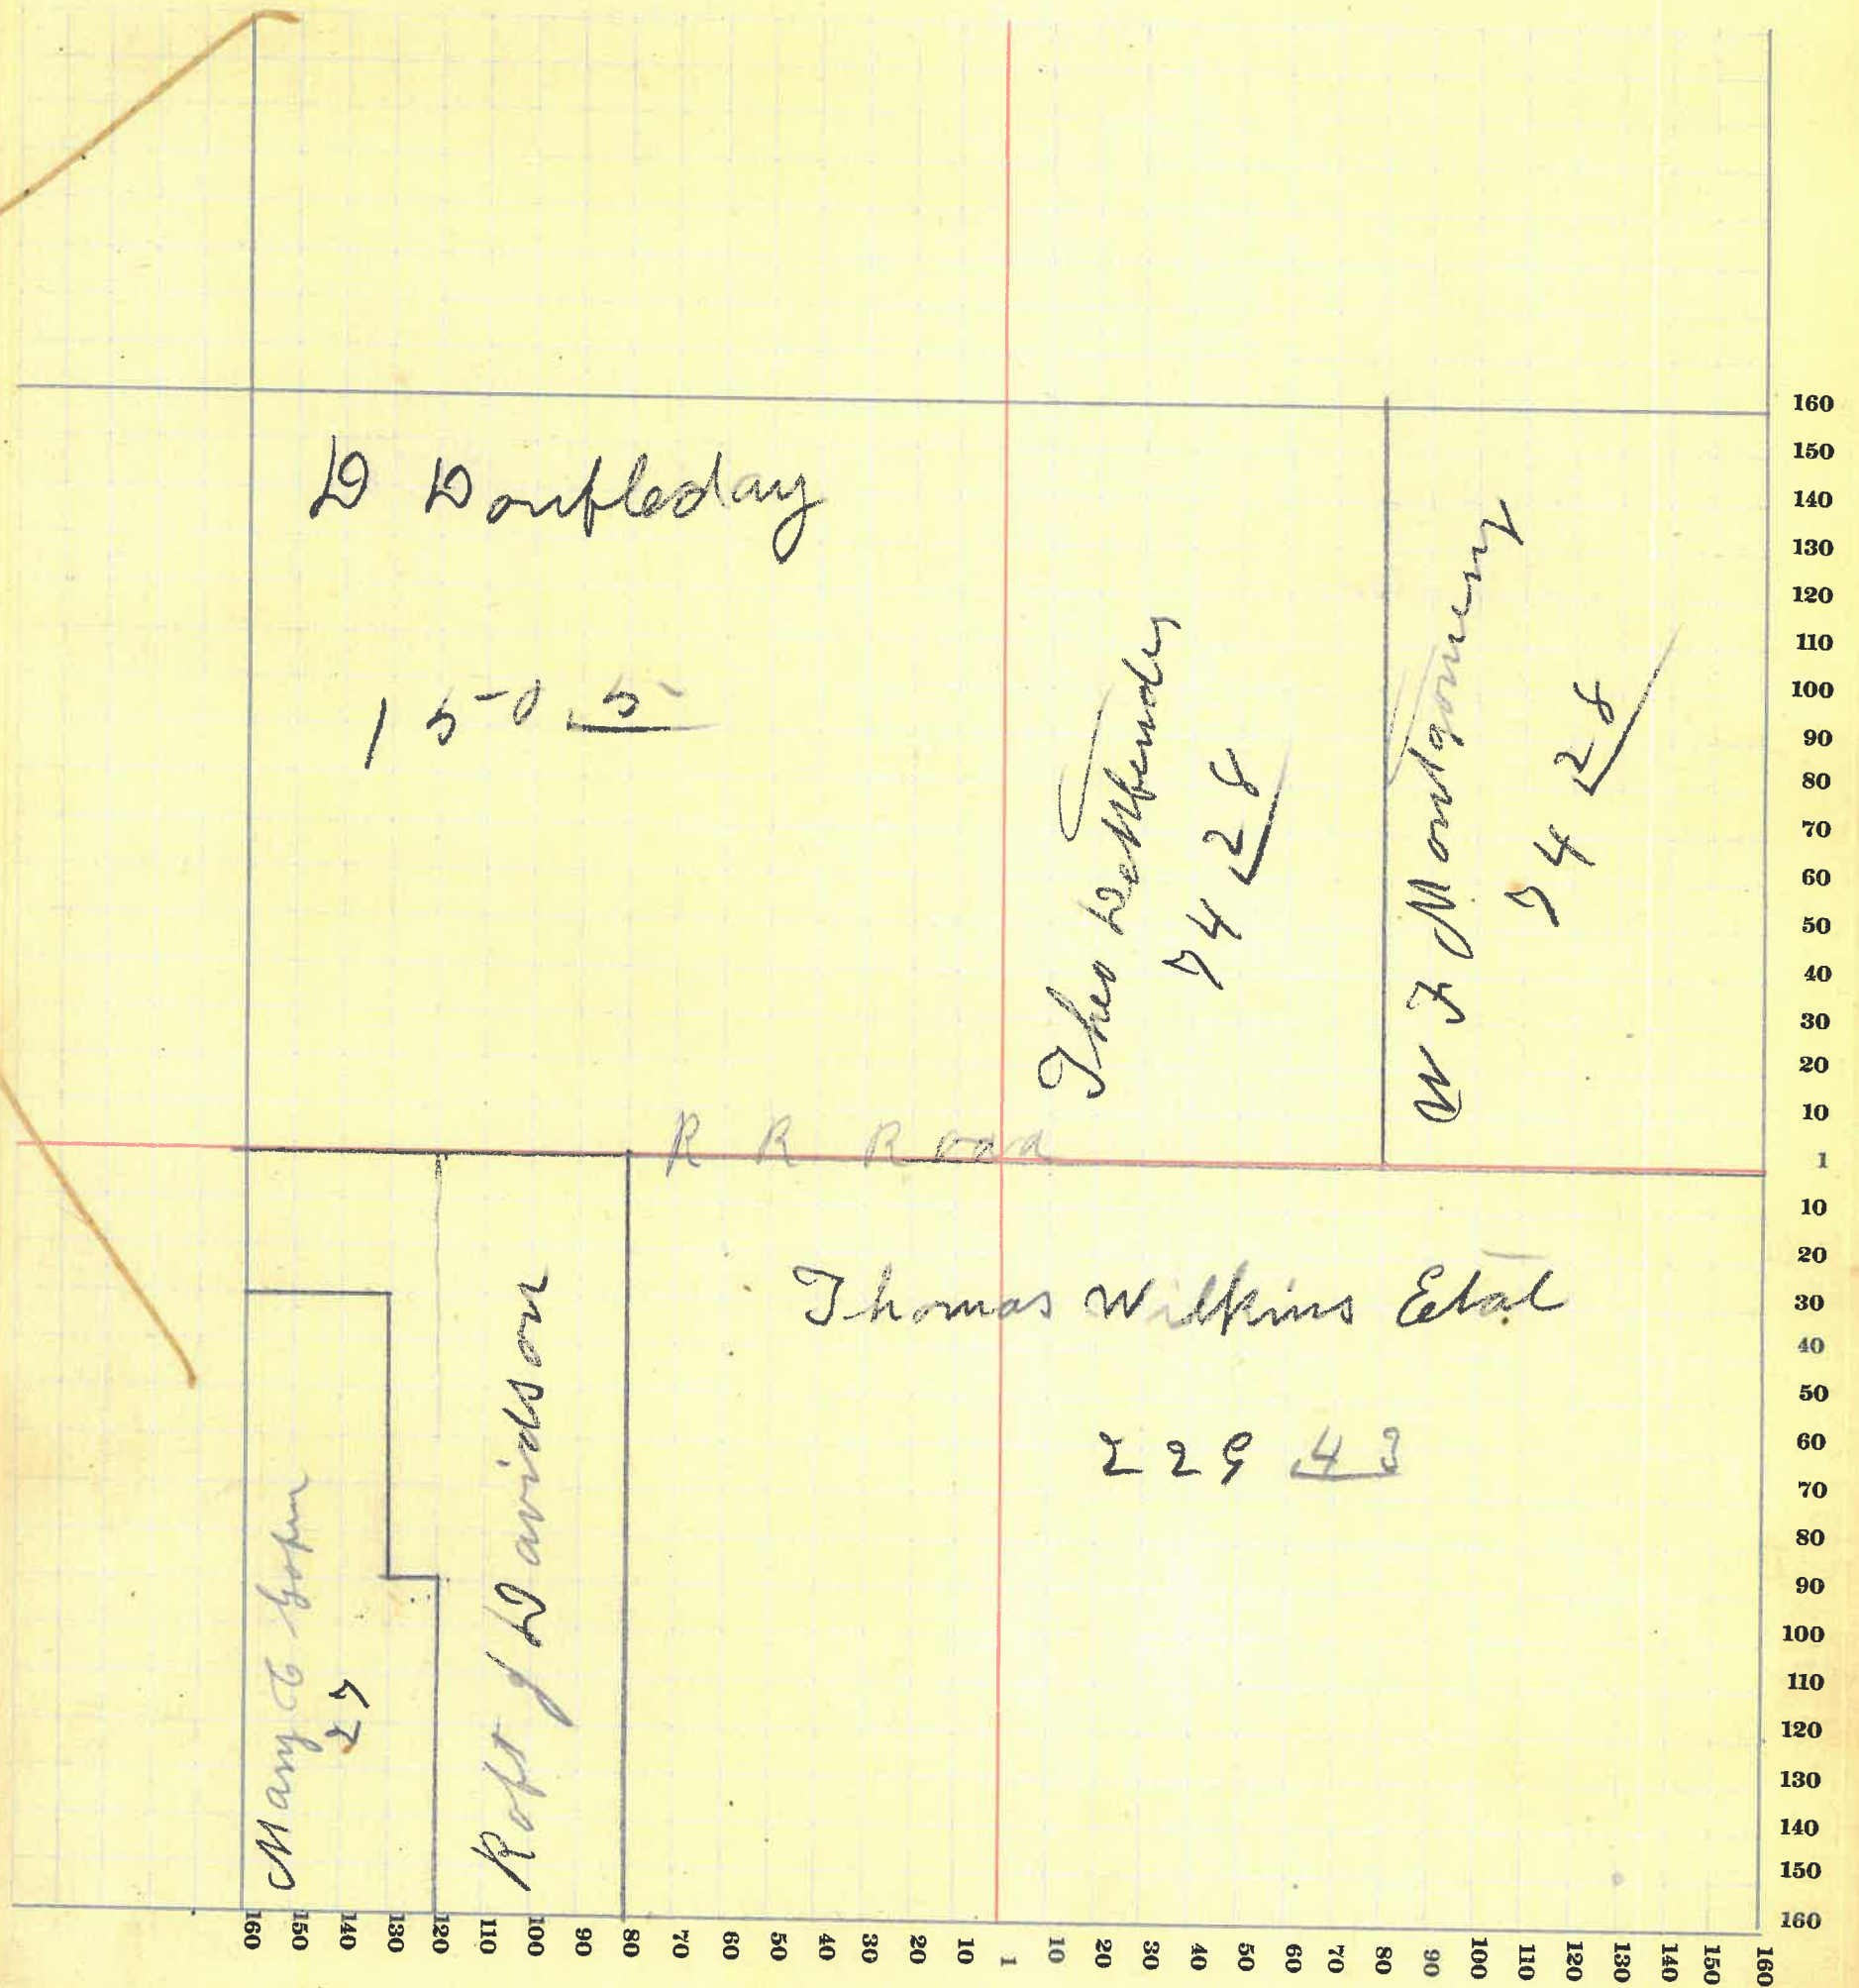 D Doubleday
150 5
Theo
74 28
W F Montgomery
74 28
R R Road
Thomas Wilkins Etal
229 43
Mary E
27
Robt J Davidson
160
150
140
130
120
110
100
90
80
70
60
50
40
30
20
10
1
10
20
30
40
50
60
70
80
90
100
110
120
130
140
150
160
160 150 140 130 120 110 100 90 80 70 60 50 40 30 20 10 1 10 20 30 40 50 60 70 80 90 100 110 120 130 140 150 160